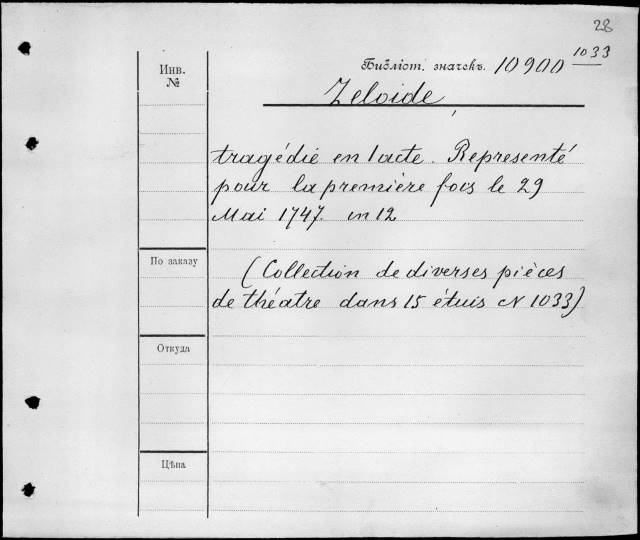 28
Инв.
№
Библіот. значекъ. 10900 1033
Zeloide
tragédie en 1 acte. Representé
pour la première fois le 29
Mai 1747. in 12
По заказу
(Collection de diverses pièces
de théatre dans 15 étuis N 1033)
Откуда
Цѣна